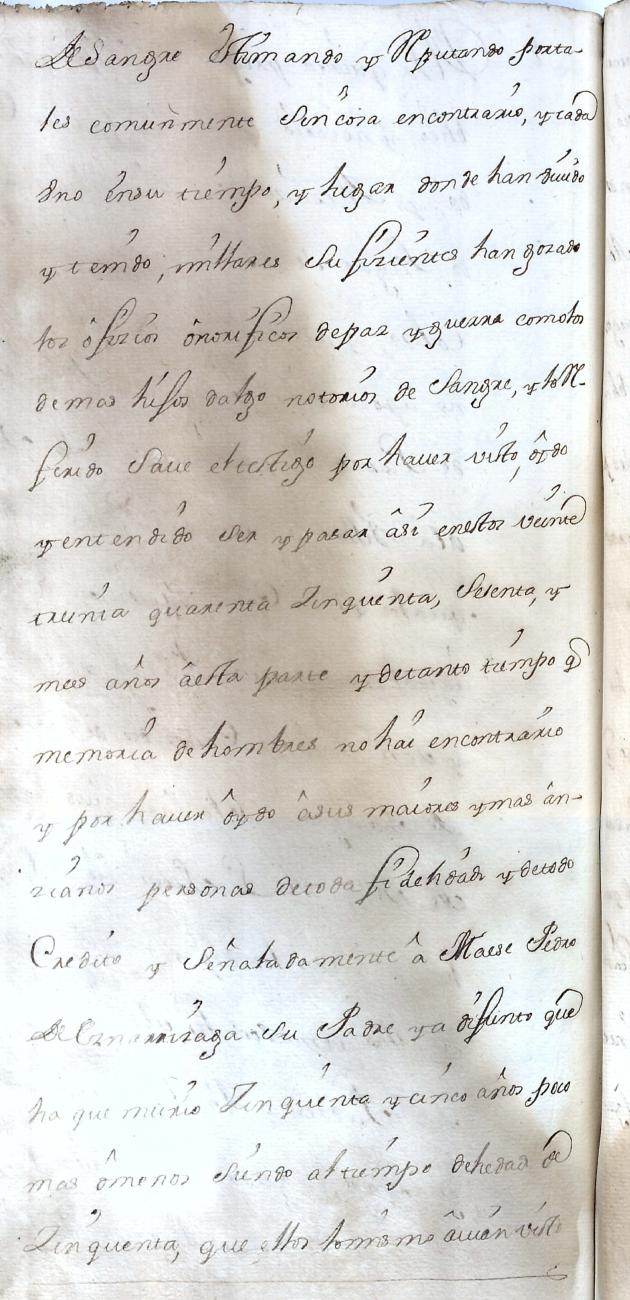 de Sangre stimando y Reputando porta-
les comunmente Sin cosa encontrario, y cada
uno ensu tiempo, y lugar donde han viuido
y tenido, millares Sufizientes han gozado
los ofizios onorificos depaz y guerra comolos
demas hijos dalgo notorios de Sangre, y lo Re-
ferido Saue eltestigo por hauer visto, oydo
y entendido Ser y pasar asi enestos veinte
treinta quarenta Zinquenta, Sesenta, y
mas años aesta parte y detanto tiempo q
memoria de hombres no hai encontrario
y por hauer oydo asus maiores y mas an-
zianos personas detoda fidelidad y detodo
Credito y Señaladamente a Maese Pedro
de Su Padre ya difunto que
ha que murio Zinquenta y cinco años poco
mas omenos Siendo altiempo dehedad de
Zinquenta, que ellos lomismo auian visto